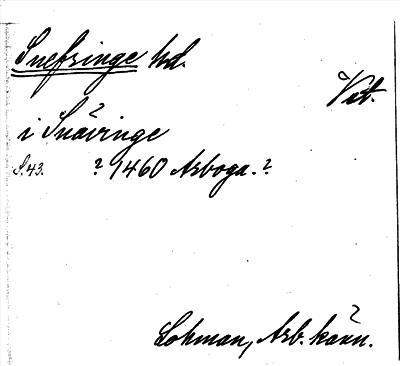 Snefringe hd.
Vstm.
i Snäwinge
S. 43. ? 1460 Arboga. ?
Lohman, Arb. känn.